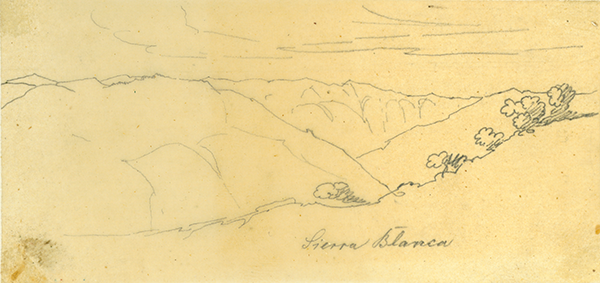 Sierra Blanca